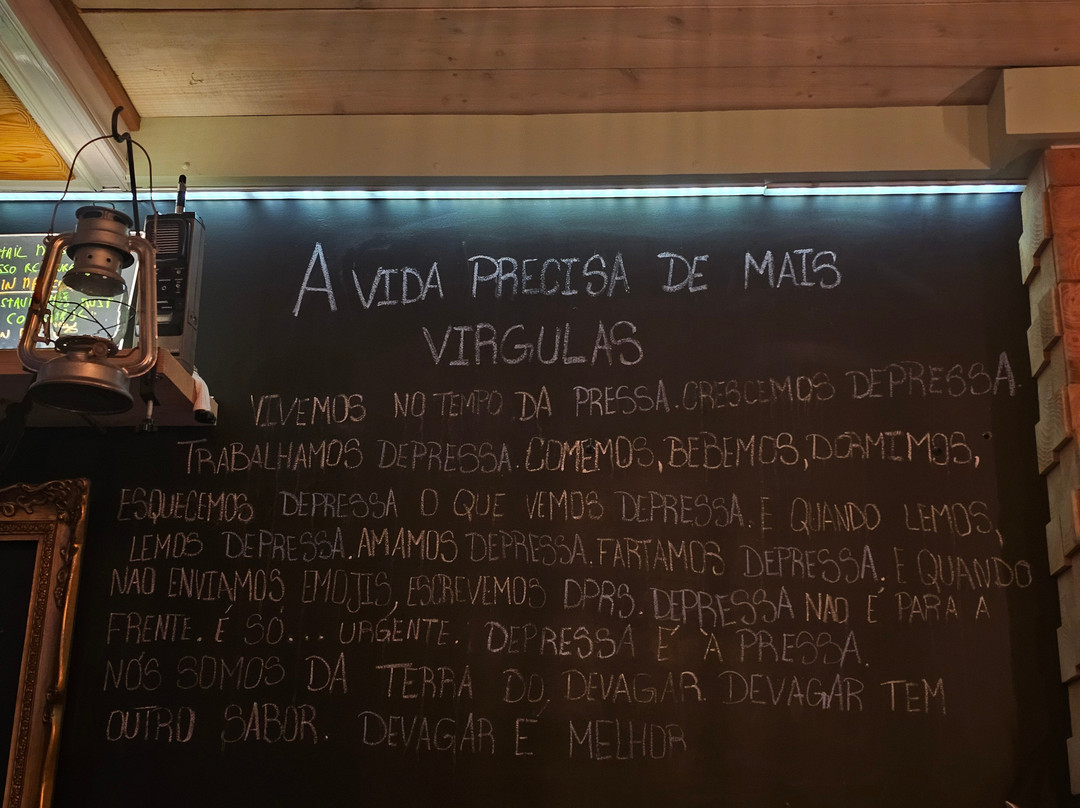 A VIDA PRECISA DE MAIS
VIRGULAS
VIVEMOS NO TEMPO DA PRESSA. CRESCEMOS DEPRESSA.
TRABALHAMOS DEPRESSA. COMEMOS, BEBEMOS, DORMIMOS,
ESQUECEMOS DEPRESSA O QUE VEMOS DEPRESSA. E QUANDO LEMOS,
LEMOS DEPRESSA. AMAMOS DEPRESSA. FARTAMOS DEPRESSA. E QUANDO
NAO ENVIAMOS EMOJIS, ESCREVEMOS DPRS. DEPRESSA NAO É PARA A
FRENTE. É SÓ... URGENTE. DEPRESSA É À PRESSA.
NÓS SOMOS DA TERRA DO DEVAGAR. DEVAGAR TEM
OUTRO SABOR. DEVAGAR É MELHOR